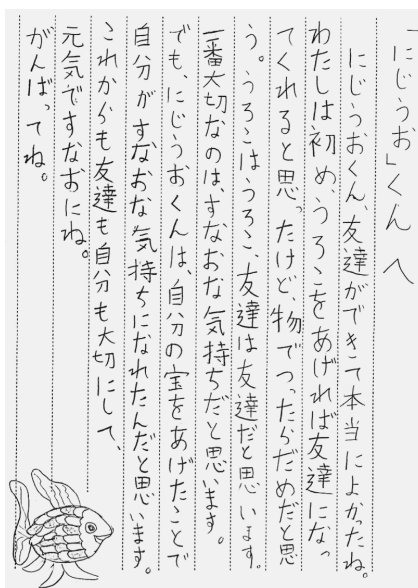 「にじうお」くんへ
にじうおくん、友達ができて本当によかったね。
わたしは初め、うろこをあげれば友達になっ
てくれると思ったけど、物でつったらだめだと思
う。うろこはうろこ、友達は友達だと思います。
一番大切なのは、すなおな気持ちだと思います。
でも、にじうおくんは、自分の宝をあげたことで
自分がすなおな気持ちになれたんだと思います。
これからも友達も自分も大切にして、
元気ですなおにね。
がんばってね。